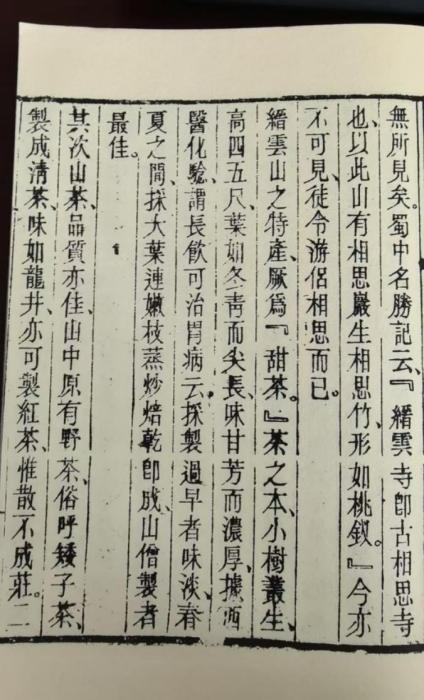 無所見矣。蜀中名勝記云、『縉雲寺卽古相思寺
也、以此山有相思巖生相思竹、形如桃釵。』今亦
不可見、徒令游侶相思而已。
縉雲山之特產、厥爲『甜茶。』茶之本、小樹叢生、
高四五尺、葉如冬靑而尖長、味甘芳而濃厚、據西
醫化驗謂長飮可治胃病云、採製過早者味淡、春
夏之間、採大葉連嫩枝蒸炒焙乾卽成、山僧製者
最佳。
其次山茶、品質亦佳、山中原有野茶、俗呼矮子茶、
製成淸茶、味如龍井、亦可製紅茶、惟散不成莊。二